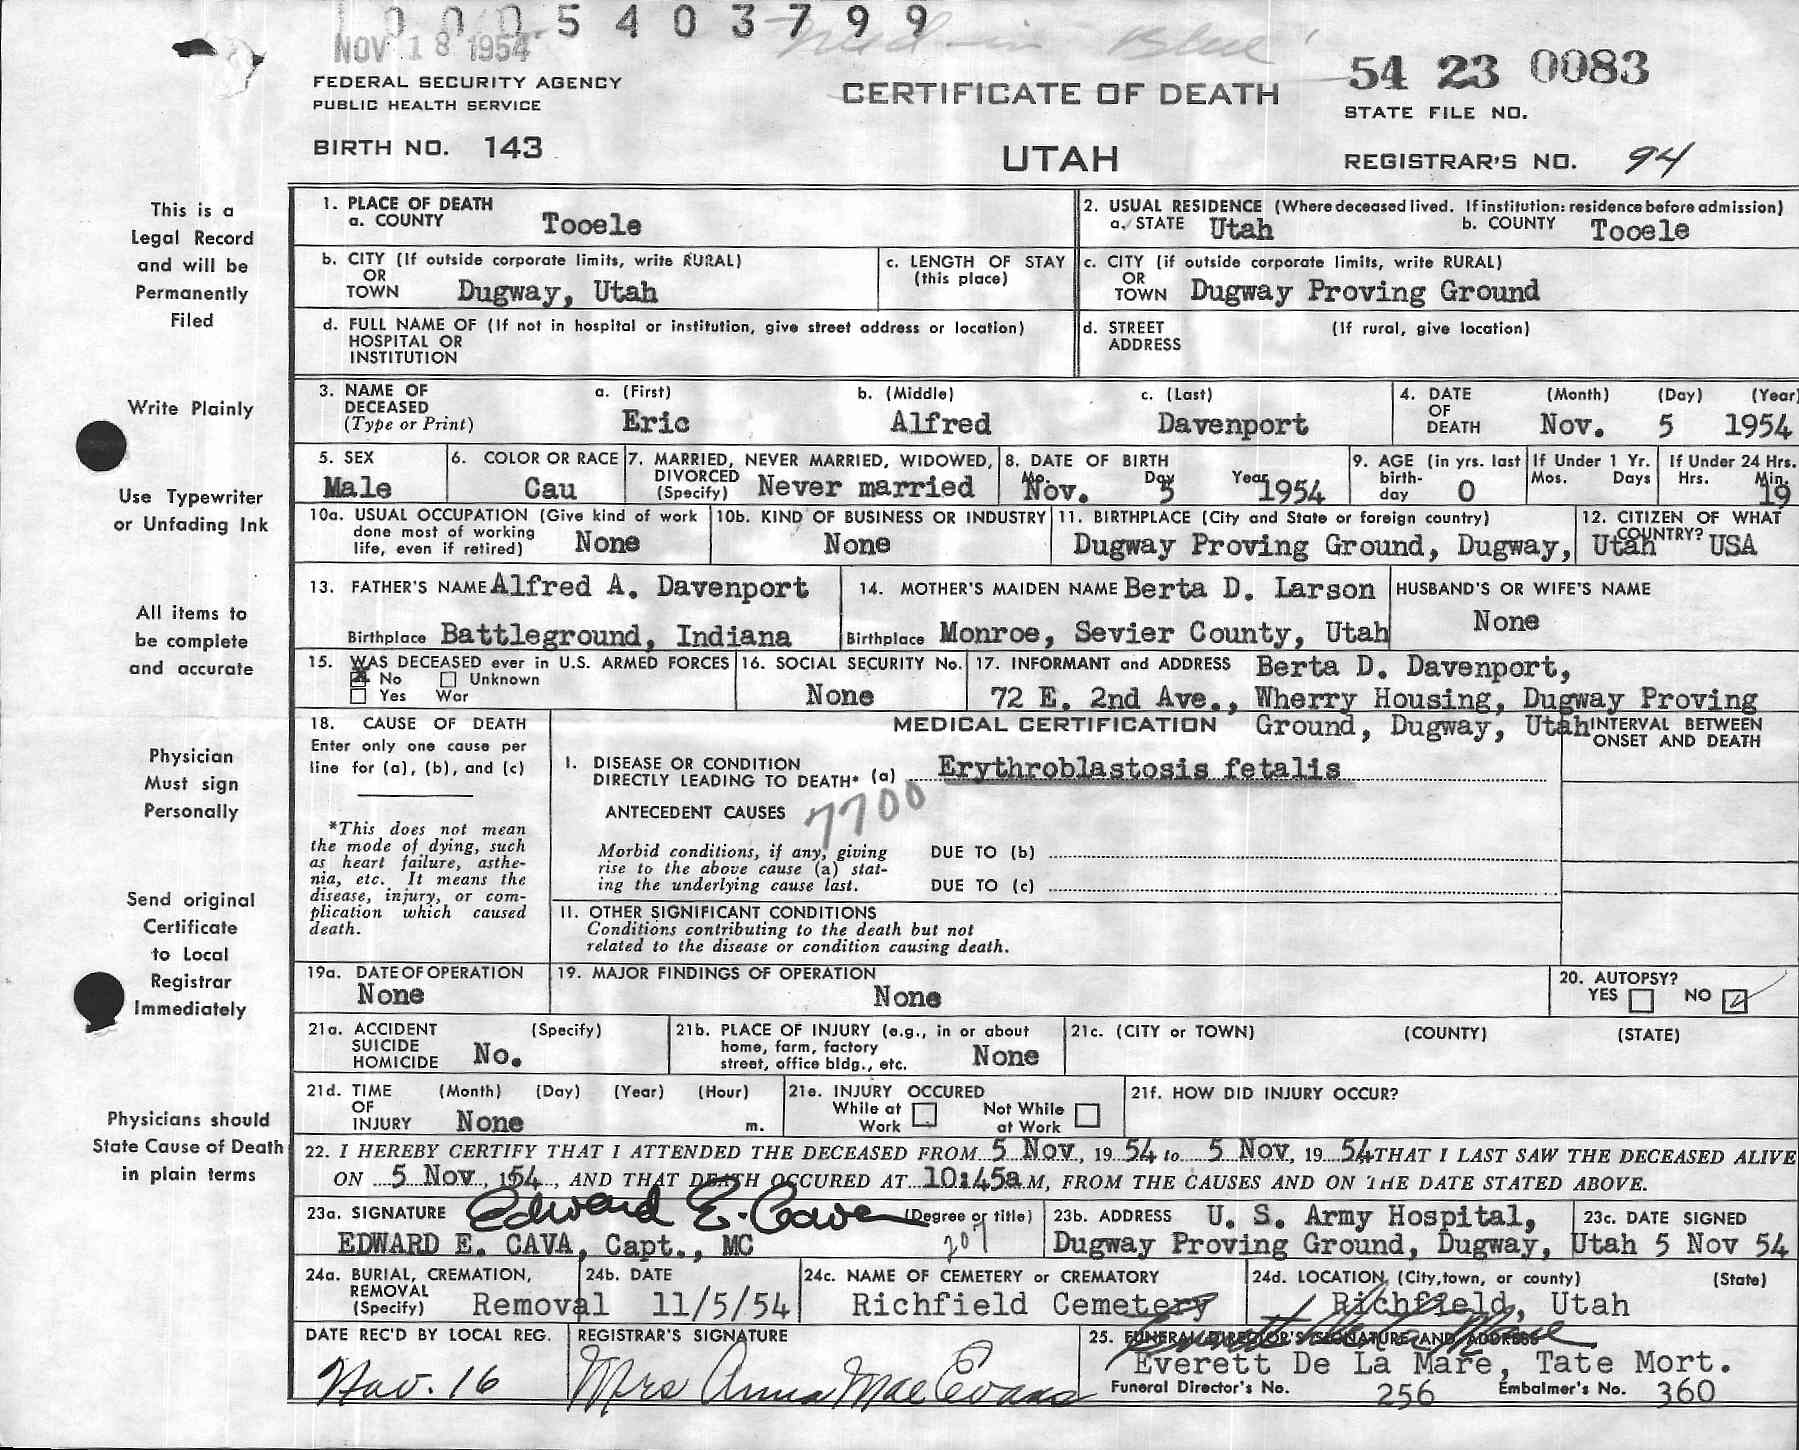 0005403799
NOV 18 1954
FEDERAL SECURITY AGENCY
PUBLIC HEALTH SERVICE
BIRTH NO. 143
CERTIFICATE OF DEATH
UTAH
54 23 0083
STATE FILE NO.
REGISTRAR'S NO. 94
This is a
Legal Record
and will be
Permanently
Filed
Write Plainly
Use Typewriter
or Unfading Ink
All items to
be complete
and accurate
Physician
Must sign
Personally
Send original
Certificate
to Local
Registrar
Immediately
Physicians should
State Cause of Death
in plain terms
1. PLACE OF DEATH
a. COUNTY Tooele
2. USUAL RESIDENCE (Where deceased lived. If institution: residence before admission)
a. STATE Utah b. COUNTY Tooele
b. CITY (If outside corporate limits, write RURAL)
OR
TOWN Dugway, Utah
c. LENGTH OF STAY
(this place)
c. CITY (if outside corporate limits, write RURAL)
OR
TOWN Dugway Proving Ground
d. FULL NAME OF (If not in hospital or institution, give street address or location)
HOSPITAL OR
INSTITUTION
d. STREET (If rural, give location)
ADDRESS
3. NAME OF
DECEASED
(Type or Print)
a. (First) b. (Middle) c. (Last)
Eric Alfred Davenport
4. DATE (Month) (Day) (Year)
OF
DEATH Nov. 5 1954
5. SEX
Male
6. COLOR OR RACE
Cau
7. MARRIED, NEVER MARRIED, WIDOWED,
DIVORCED
(Specify) Never married
8. DATE OF BIRTH
Mo. Day Year
Nov. 5 1954
9. AGE (in yrs. last
birth-
day 0
If Under 1 Yr.
Mos. Days
If Under 24 Hrs.
Hrs. Min.
19
10a. USUAL OCCUPATION (Give kind of work
done most of working
life, even if retired) None
10b. KIND OF BUSINESS OR INDUSTRY
None
11. BIRTHPLACE (City and State or foreign country)
Dugway Proving Ground, Dugway, Utah
12. CITIZEN OF WHAT
COUNTRY? USA
13. FATHER'S NAME Alfred A. Davenport
Birthplace Battleground, Indiana
14. MOTHER'S MAIDEN NAME Berta D. Larson
Birthplace Monroe, Sevier County, Utah
HUSBAND'S OR WIFE'S NAME
None
15. WAS DECEASED ever in U.S. ARMED FORCES
No Unknown
Yes War
16. SOCIAL SECURITY No.
None
17. INFORMANT and ADDRESS Berta D. Davenport,
72 E. 2nd Ave., Wherry Housing, Dugway Proving
Ground, Dugway, Utah
18. CAUSE OF DEATH
Enter only one cause per
line for (a), (b), and (c)
*This does not mean
the mode of dying, such
as heart failure, asthe-
nia, etc. It means the
disease, injury, or com-
plication which caused
death.
MEDICAL CERTIFICATION
INTERVAL BETWEEN
ONSET AND DEATH
I. DISEASE OR CONDITION
DIRECTLY LEADING TO DEATH* (a) Erythroblastosis fetalis
ANTECEDENT CAUSES 7700
Morbid conditions, if any, giving
rise to the above cause (a) stat-
ing the underlying cause last.
DUE TO (b)
DUE TO (c)
II. OTHER SIGNIFICANT CONDITIONS
Conditions contributing to the death but not
related to the disease or condition causing death.
19a. DATE OF OPERATION
None
19. MAJOR FINDINGS OF OPERATION
None
20. AUTOPSY?
YES NO
21a. ACCIDENT (Specify)
SUICIDE
HOMICIDE No.
21b. PLACE OF INJURY (e.g., in or about
home, farm, factory
street, office bldg., etc. None
21c. (CITY or TOWN) (COUNTY) (STATE)
21d. TIME (Month) (Day) (Year) (Hour)
OF
INJURY None m.
21e. INJURY OCCURED
While at Work Not While at Work
21f. HOW DID INJURY OCCUR?
22. I HEREBY CERTIFY THAT I ATTENDED THE DECEASED FROM 5 Nov, 19 54 to 5 Nov, 19 54 THAT I LAST SAW THE DECEASED ALIVE
ON 5 Nov, 154, AND THAT DEATH OCCURED AT 10:45a M, FROM THE CAUSES AND ON THE DATE STATED ABOVE.
23a. SIGNATURE Edward E. Cava (Degree or title)
EDWARD E. CAVA, Capt., MC 207
23b. ADDRESS U. S. Army Hospital,
Dugway Proving Ground, Dugway, Utah
23c. DATE SIGNED
5 Nov 54
24a. BURIAL, CREMATION,
REMOVAL
(Specify) Removal
24b. DATE
11/5/54
24c. NAME OF CEMETERY or CREMATORY
Richfield Cemetery
24d. LOCATION, (City, town, or county) (State)
Richfield, Utah
DATE REC'D BY LOCAL REG.
Nov. 16
REGISTRAR'S SIGNATURE
Mrs Anna Mae Evans
25. FUNERAL DIRECTOR'S SIGNATURE AND ADDRESS
Everett De La Mare
Everett De La Mare, Tate Mort.
Funeral Director's No. 256 Embalmer's No. 360